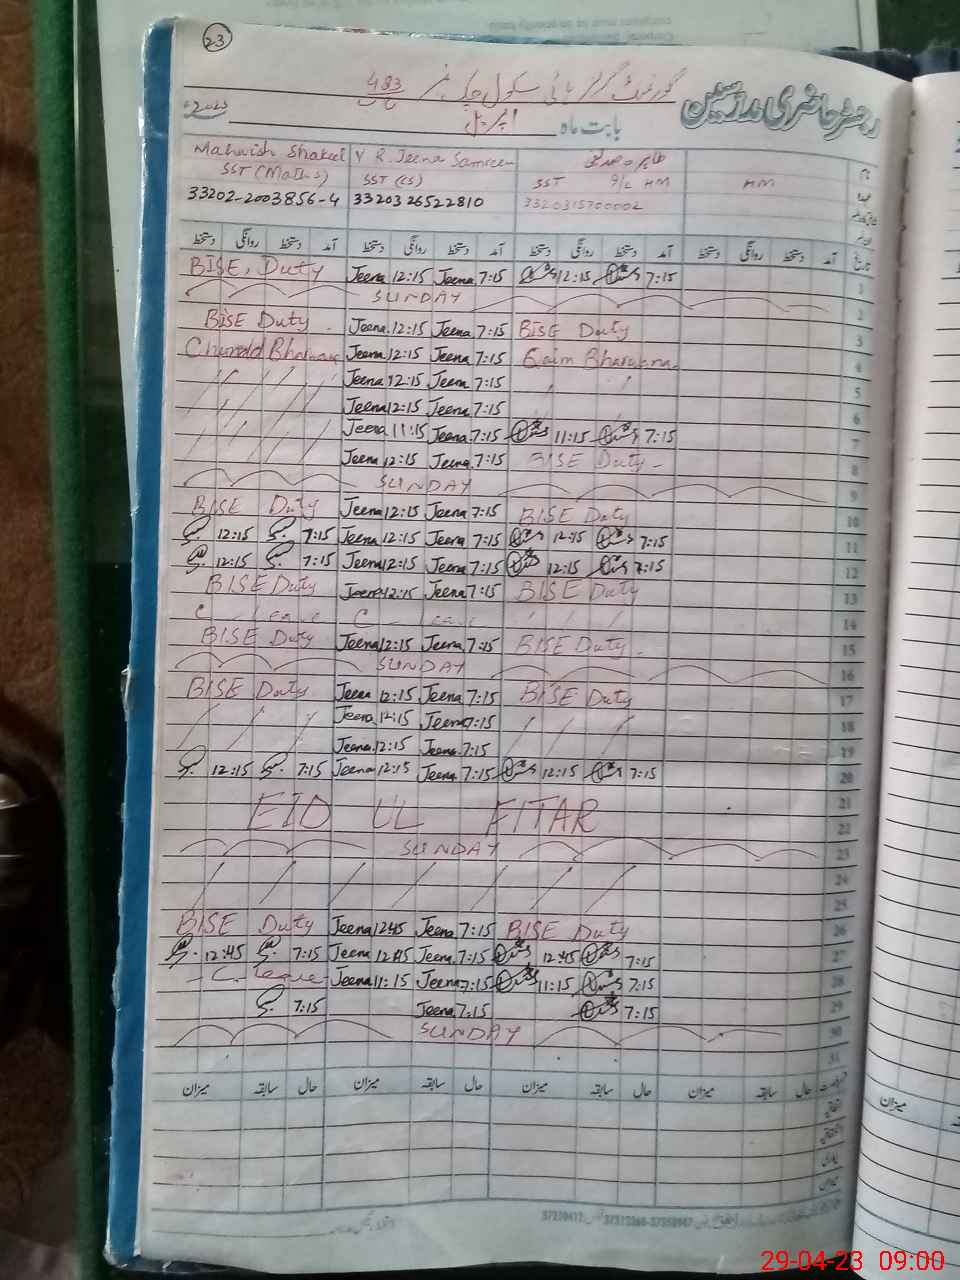 23
گورنمنٹ گرلز ہائی سکول چک نمبر 483
رجسٹر حاضری مدرسین
بابت ماہ اپریل 2023ء
Mahwish Shakeel R. Jeena Samreen
SST (Maths) SST (CS) SST I/C HM HM
33202-2003856-4 3320326522810 3320315700002
دستخط روانگی دستخط آمد دستخط روانگی دستخط آمد دستخط روانگی دستخط آمد دستخط روانگی دستخط آمد تاریخ
BISE, Duty Jeena 12:15 Jeena 7:15 12:15 7:15 1
SUNDAY 2
BISE Duty Jeena 12:15 Jeena 7:15 BISE Duty 3
Jeena 12:15 Jeena 7:15 4
Jeena 12:15 Jeena 7:15 5
Jeena 12:15 Jeena 7:15 6
Jeena 11:15 Jeena 7:15 11:15 7:15 7
Jeena 12:15 Jeena 7:15 BISE Duty 8
SUNDAY 9
BISE Duty Jeena 12:15 Jeena 7:15 BISE Duty 10
12:15 7:15 Jeena 12:15 Jeena 7:15 12:15 7:15 11
12:15 7:15 Jeena 12:15 Jeena 7:15 12:15 7:15 12
BISE Duty Jeena 12:15 Jeena 7:15 BISE Duty 13
C Leave C Leave 14
BISE Duty Jeena 12:15 Jeena 7:15 BISE Duty 15
SUNDAY 16
BISE Duty Jeena 12:15 Jeena 7:15 BISE Duty 17
Jeena 12:15 Jeena 7:15 18
Jeena 12:15 Jeena 7:15 19
12:15 7:15 Jeena 12:15 Jeena 7:15 12:15 7:15 20
21
EID UL FITAR 22
SUNDAY 23
24
25
BISE Duty Jeena 12:45 Jeena 7:15 BISE Duty 26
12:45 7:15 Jeena 12:45 Jeena 7:15 12:45 7:15 27
C. Leave Jeena 11:15 Jeena 7:15 11:15 7:15 28
7:15 Jeena 7:15 7:15 29
SUNDAY 30
31
میزان سابقہ حال میزان سابقہ حال میزان سابقہ حال میزان سابقہ حال
میزان
29-04-23 09:00